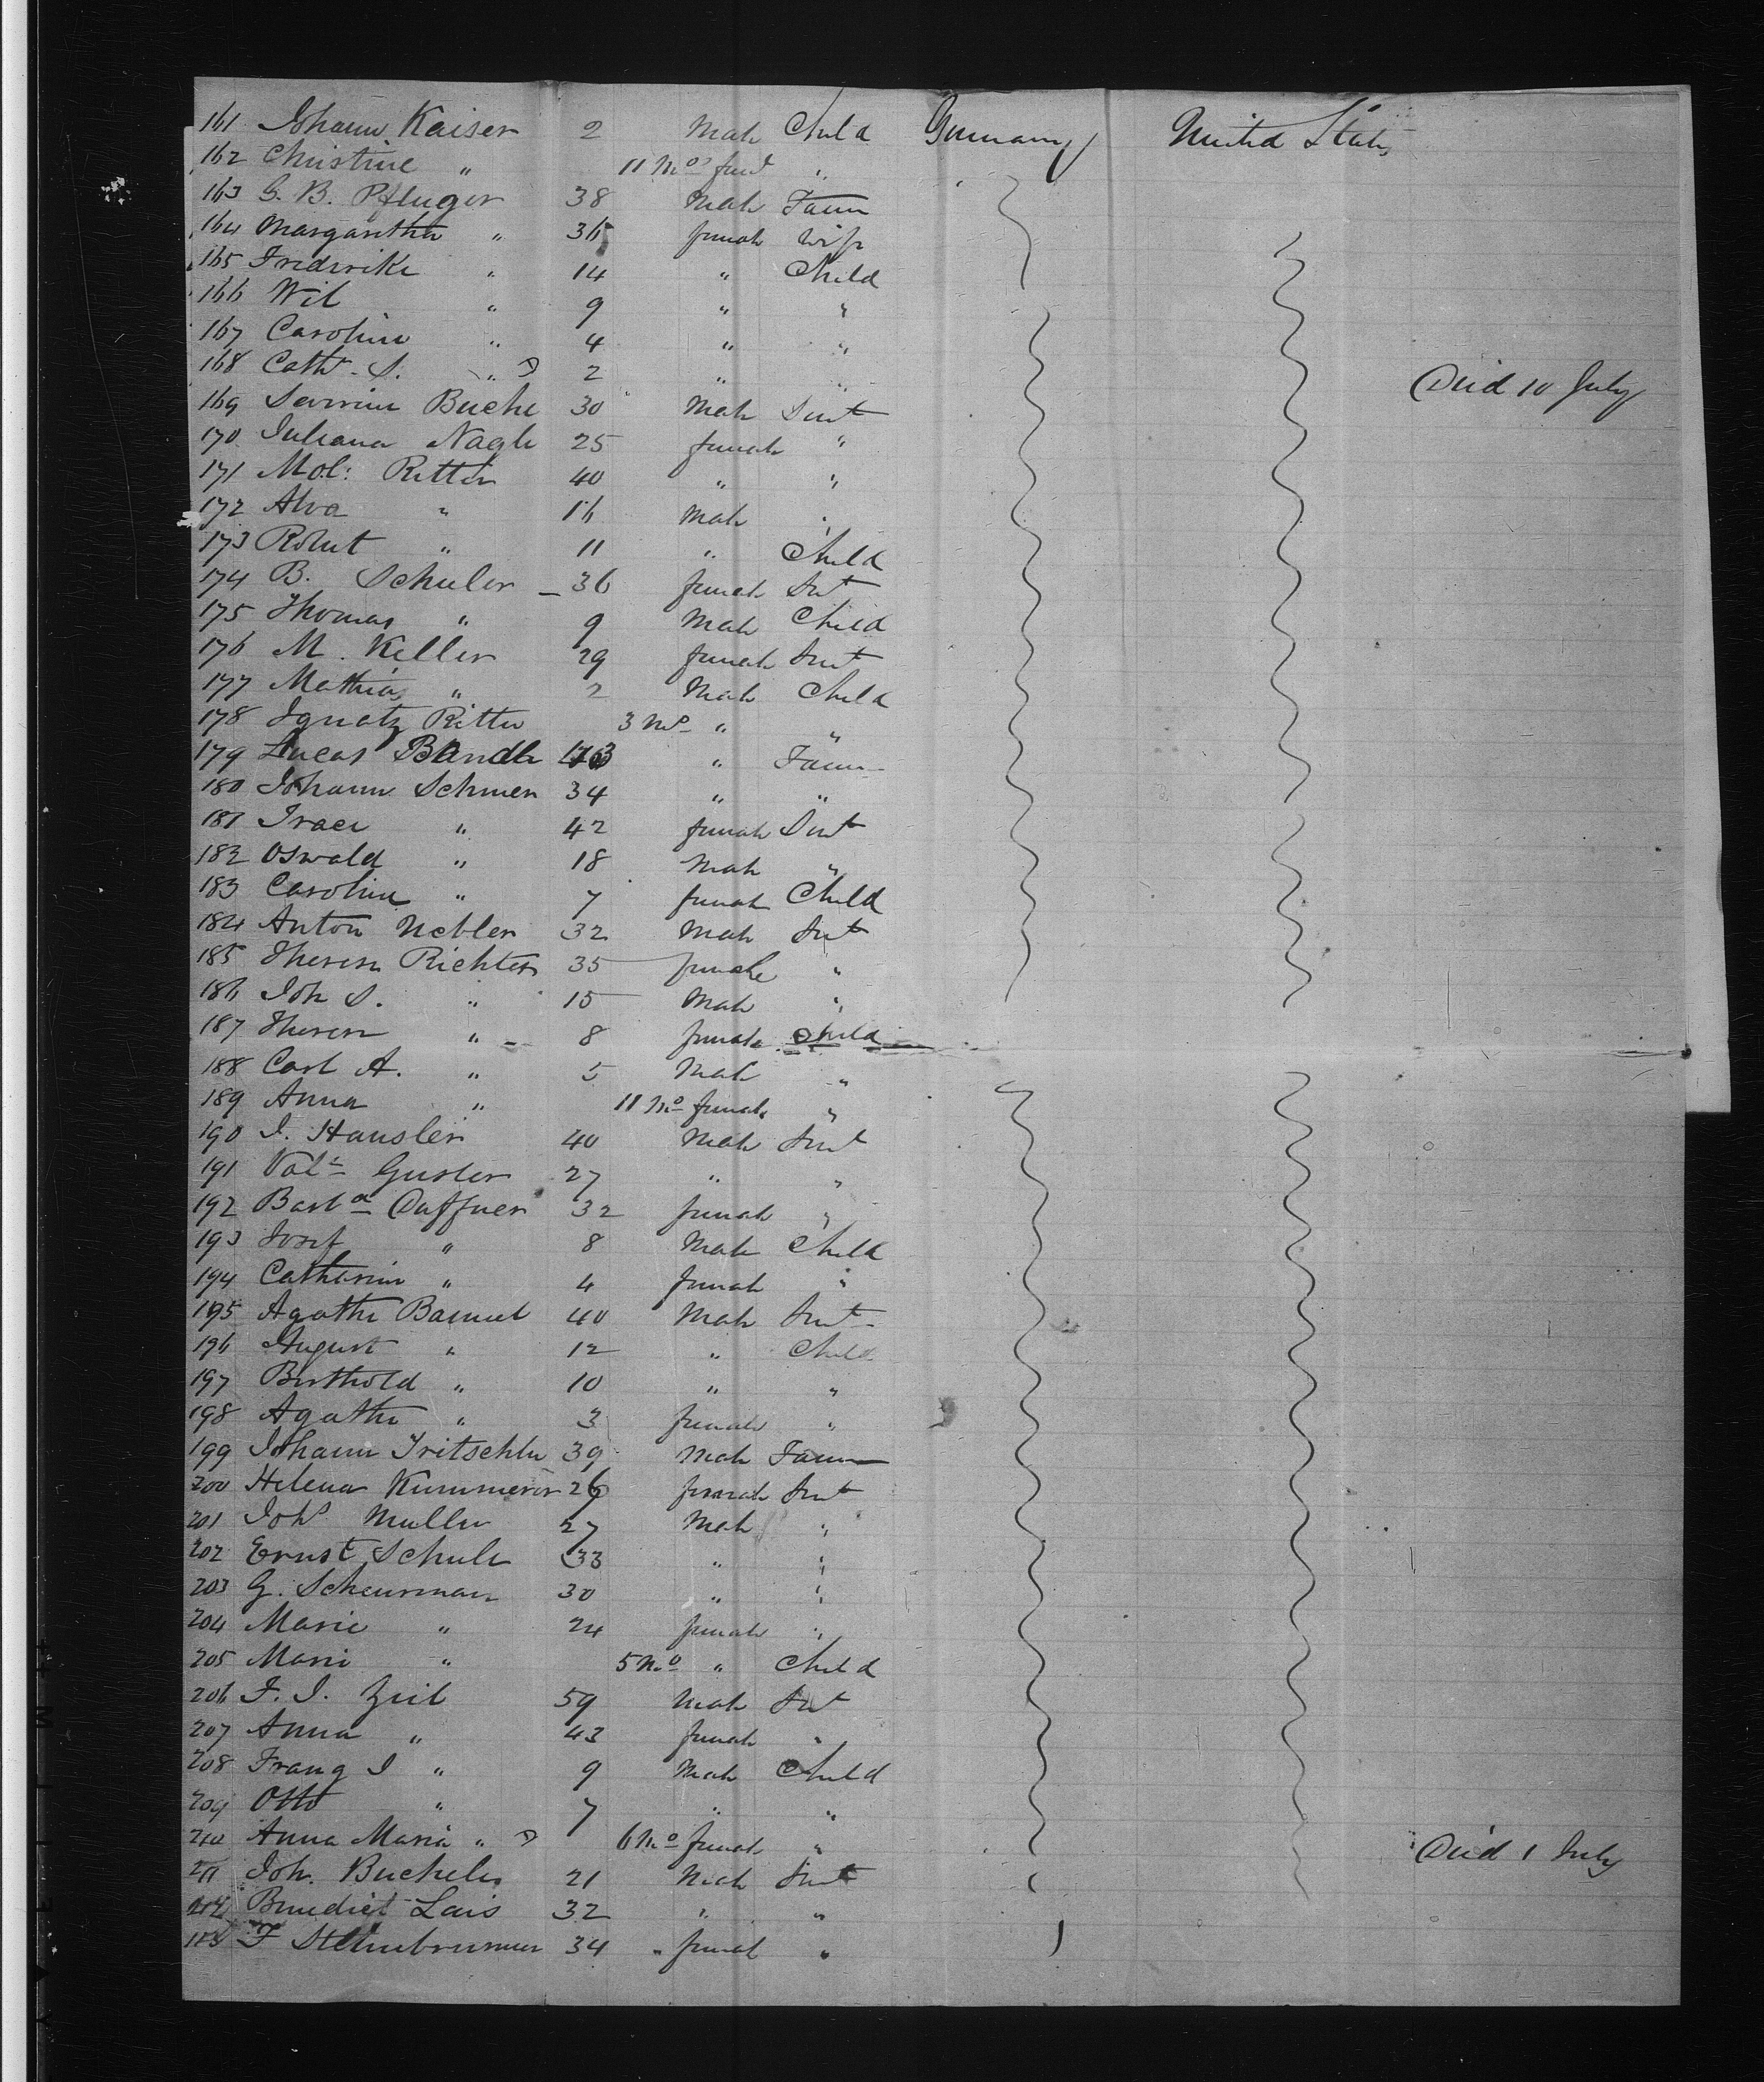 161 Johann Kaiser 2 Male Child Germany United States
162 Christine " 11 Mos fem "
163 G. B. Pfluger 38 Male Farm
164 Margaretha " 36 female Wife
165 Friderike " 14 " Child
166 Wil " 9 " "
167 Caroline " 4 " "
168 Cath. S. " D 2 " " Died 10 July
169 Buche 30 Male Sert
170 Juliana Nagle 25 female "
171 Mol: Ritter 40 " "
172 Alva " 16 Male "
173 Robert " 11 " Child
174 B. Schuler 36 female Svt
175 Thomas " 9 Male Child
176 M. Keller 29 female Svt
177 Mathias " 2 Male Child
178 Ignatz Ritter 3 Mo "  "
179 Lucas Bandle " Farm
180 Johann Schmer 34 " "
181 " 42 female Svt
182 Oswald " 18 Male "
183 Caroline " 7 female Child
184 Anton Nebler 32 Male Svt
185 Theresa Richter 35 female "
186 Joh S. " 15 Male "
187 Theresa " 8 female Child
188 Carl A. " 5 Male "
189 Anna " 11 Mo female "
190 J. Hausler 40 Male Svt
191 Val Guster 27 " "
192 Barba Duffner 32 female "
193 Josef " 8 Male Child
194 Catherine " 4 female "
195 Agathe Bamuel 40 Male Svt
196 August " 12 " Child
197 Berthold " 10 " "
198 Agathe " 3 female "
199 Johann Tritschler 39 Male Farm
200 Helena Kummerer 26 female Svt
201 Johs Muller 27 Male "
202 Ernst Schule 33 " "
203 G. Scheurman 30 " "
204 Marie " 24 female "
205 Marie " 5 Mo " Child
206 F. J. Zeil 59 Male Svt
207 Anna " 43 female "
208 Franz J " 9 Male Child
209 Otto " 7 " "
210 Anna Maria " D 6 Mo female " Died 1 July
211 Joh. Bucheler 21 Male Svt
212 Benedict Lais 32 " "
F Steinbrunner 34 " femal "